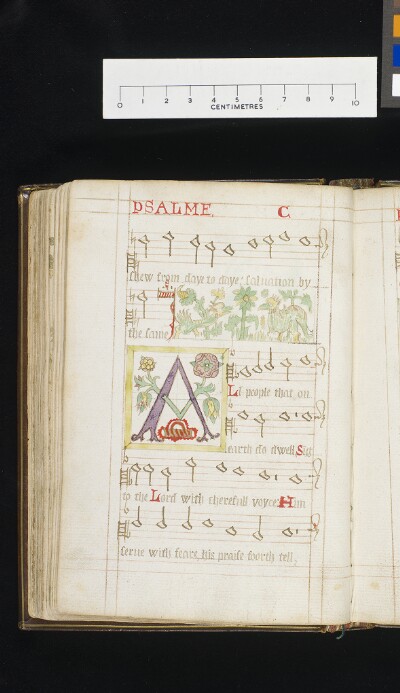 0 1 2 3 4 5 6 7 8 9 10
CENTIMETRES
PSALME. C
shew from daye to daye: saluation by
the same.
A
Ll people that, on
earth do dwell, Sing
to the Lord with cherefull voyce. Him
serue with feare, his praise foorth tell,